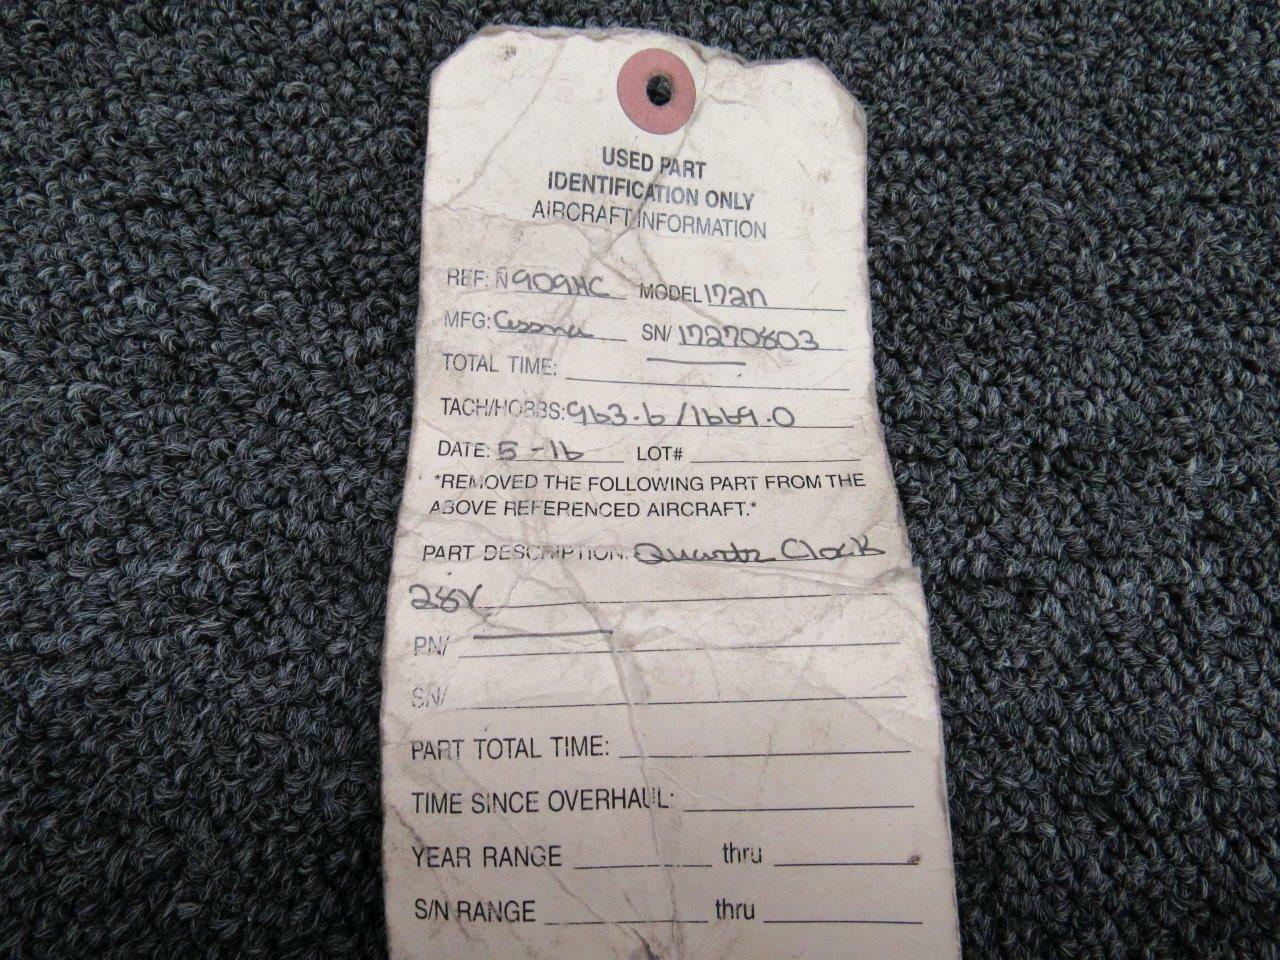 USED PART
IDENTIFICATION ONLY
AIRCRAFT INFORMATION
REF: N909HC MODEL 172N
MFG: Cessna SN/ 17270803
TOTAL TIME: —
TACH/HOBBS: 963.6 / 1669.0
DATE: 5-16 LOT#
*REMOVED THE FOLLOWING PART FROM THE
ABOVE REFERENCED AIRCRAFT.*
PART DESCRIPTION: Quartz Clock
28V
PN/ —
SN/
PART TOTAL TIME:
TIME SINCE OVERHAUL:
YEAR RANGE thru
S/N RANGE thru